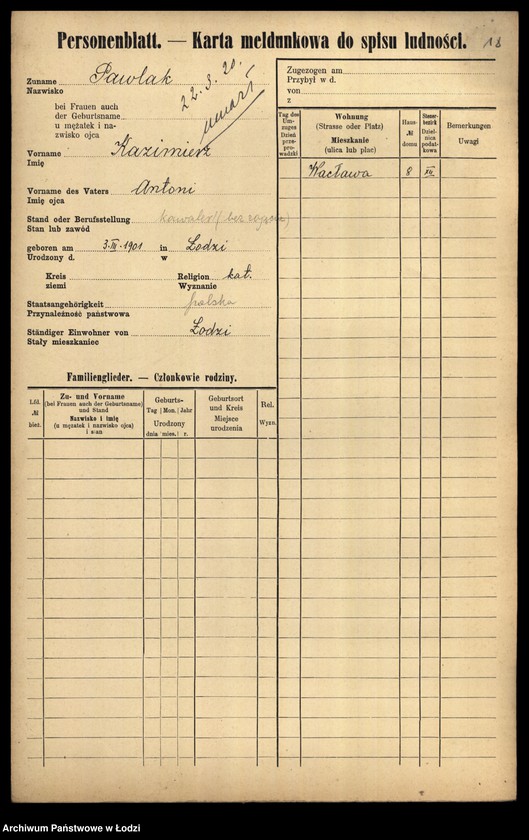 Personenblatt. — Karta meldunkowa do spisu ludności.
18
Zuname Pawlak
Nazwisko
22.3.20.
umarł
bei Frauen auch
der Geburtsname
u mężatek i na-
zwisko ojca
Vorname Kazimierz
Imię
Vorname des Vaters Antoni
Imię ojca
Stand oder Berufsstellung kawaler (bez zajęcia)
Stan lub zawód
geboren am 3.III.1901 in Łodzi
Urodzony d. w
Kreis Religion kat.
ziemi Wyznanie
Staatsangehörigkeit polska
Przynależność państwowa
Ständiger Einwohner von Łodzi
Stały mieszkaniec
Familienglieder. — Członkowie rodziny.
Lfd.
№
bież.
Zu- und Vorname
(bei Frauen auch der Geburtsname)
und Stand
Nazwisko i imię
(u mężatek i nazwisko ojca)
i stan
Geburts-
Tag Mon. Jahr
Urodzony
dnia mies. r.
Geburtsort
und Kreis
Miejsce
urodzenia
Rel.
Wyzn.
Zugezogen am
Przybył w d.
von
z
Tag des
Um-
zuges
Dzień
prze-
prowadzki
Wohnung
(Strasse oder Platz)
Mieszkanie
(ulica lub plac)
Haus-
№
domu
Steuer-
bezirk
Dziel-
nica
podat-
kowa
Bemerkungen
Uwagi
Wacława 8 XII.
Archiwum Państwowe w Łodzi